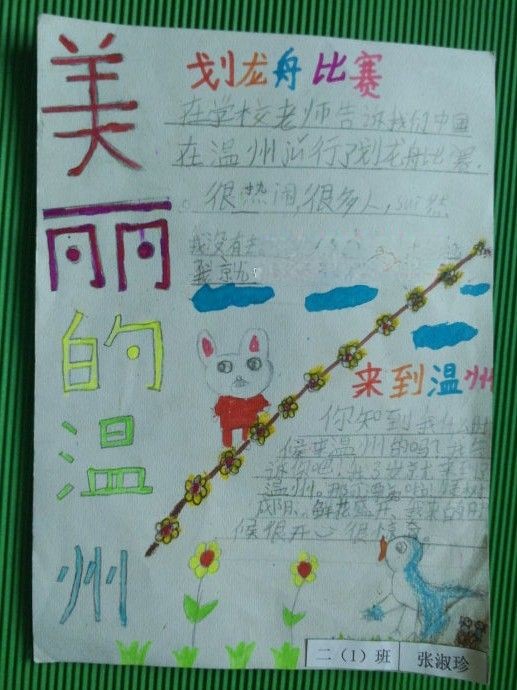 美丽的温州
划龙舟比赛
在学校老师告诉我们中国
在温州行了划龙舟比赛，
很热闹，很多人，sui然
我没有去
我就
来到温州
你知到我什么时
候来温州的吗？我告
诉你吧！我3岁就来到
温州。那
成阴、鲜花盛开、我来
候很开心 很
二（1）班 张淑珍